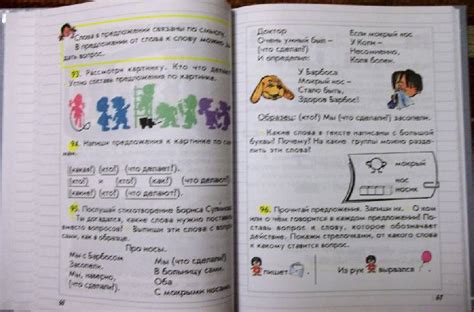 Слова в предложении связаны по смыслу.
В предложении от слова к слову можно за-
дать вопрос.
93. Рассмотри картинку. Кто что делает?
Устно составь предложения по картинке.
94. Напиши предложения к картинке по схе-
мам.
(какая?) (кто?) (что делает?).
(кто?) и (кто?) (как?) (что делают?).
(какие?) (кто?) (что делают?).
95. Послушай стихотворение Бориса
Ты догадался, какие слова нужно поставить
вместо вопросов? Выпиши эти слова с вопро-
сами, как в образце.
Про носы.
Мы с Барбосом
Засопели.
Мы, наверно,
(что сделали?).
Мы (что сделали?)
В больницу сами.
Оба
С мокрыми носами.
66
Доктор
Очень умный был –
(что сделал?)
И определил:
Если мокрый нос
У Коли –
Несомненно,
Коля болен.
У Барбоса
Мокрый нос –
Стало быть,
Здоров Барбос!
Образец: (кто?) Мы (что сделали?) засопели.
Какие слова в тексте написаны с большой
буквы? Почему? На какие группы можно разде-
лить эти слова?
мокрый
нос
носик
96. Прочитай предложения. Запиши их. О ком
или о чём говорится в каждом предложении? По-
ставь вопрос к слову, которое обозначает
действие. Покажи стрелочками, от какого слова
к какому ставится вопрос.
пишет
Из рук
вырвался
67